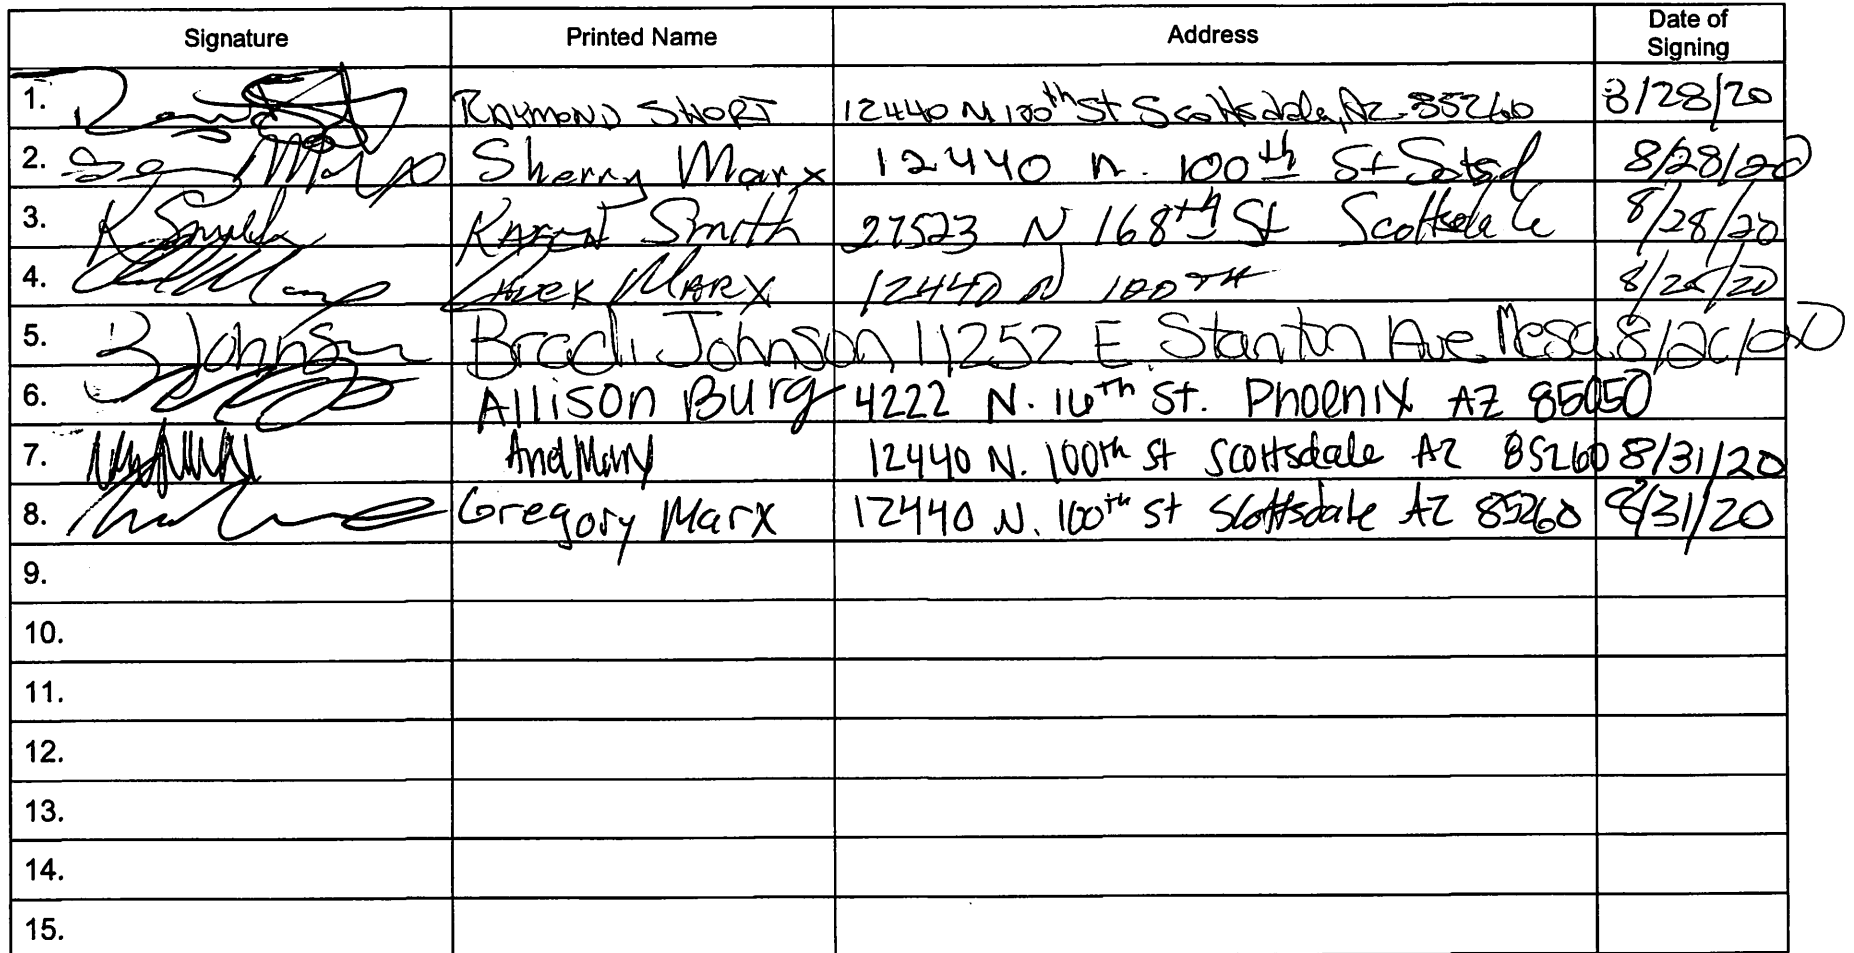 Signature Printed Name Address Date of Signing
1. RAYMOND SHORT 12440 N 100th St Scottsdale, Az 85260 8/28/20
2. Marx Sherry Marx 12440 N. 100th St 8/28/20
3. K Smith Karen Smith 27523 N 168th St Scottsdale 8/28/20
4. Chuck MARX 12440 N 100TH
5. B Johnson Johnson 11252 E Stanton Ave Mesa
6. Allison Burg 4222 N. 16th St. Phoenix AZ 85050
7. 12440 N. 100th St Scottsdale AZ 85260 8/31/20
8. Gregory Marx 12440 N. 100th St Scottsdale AZ 85260 8/31/20
9.
10.
11.
12.
13.
14.
15.